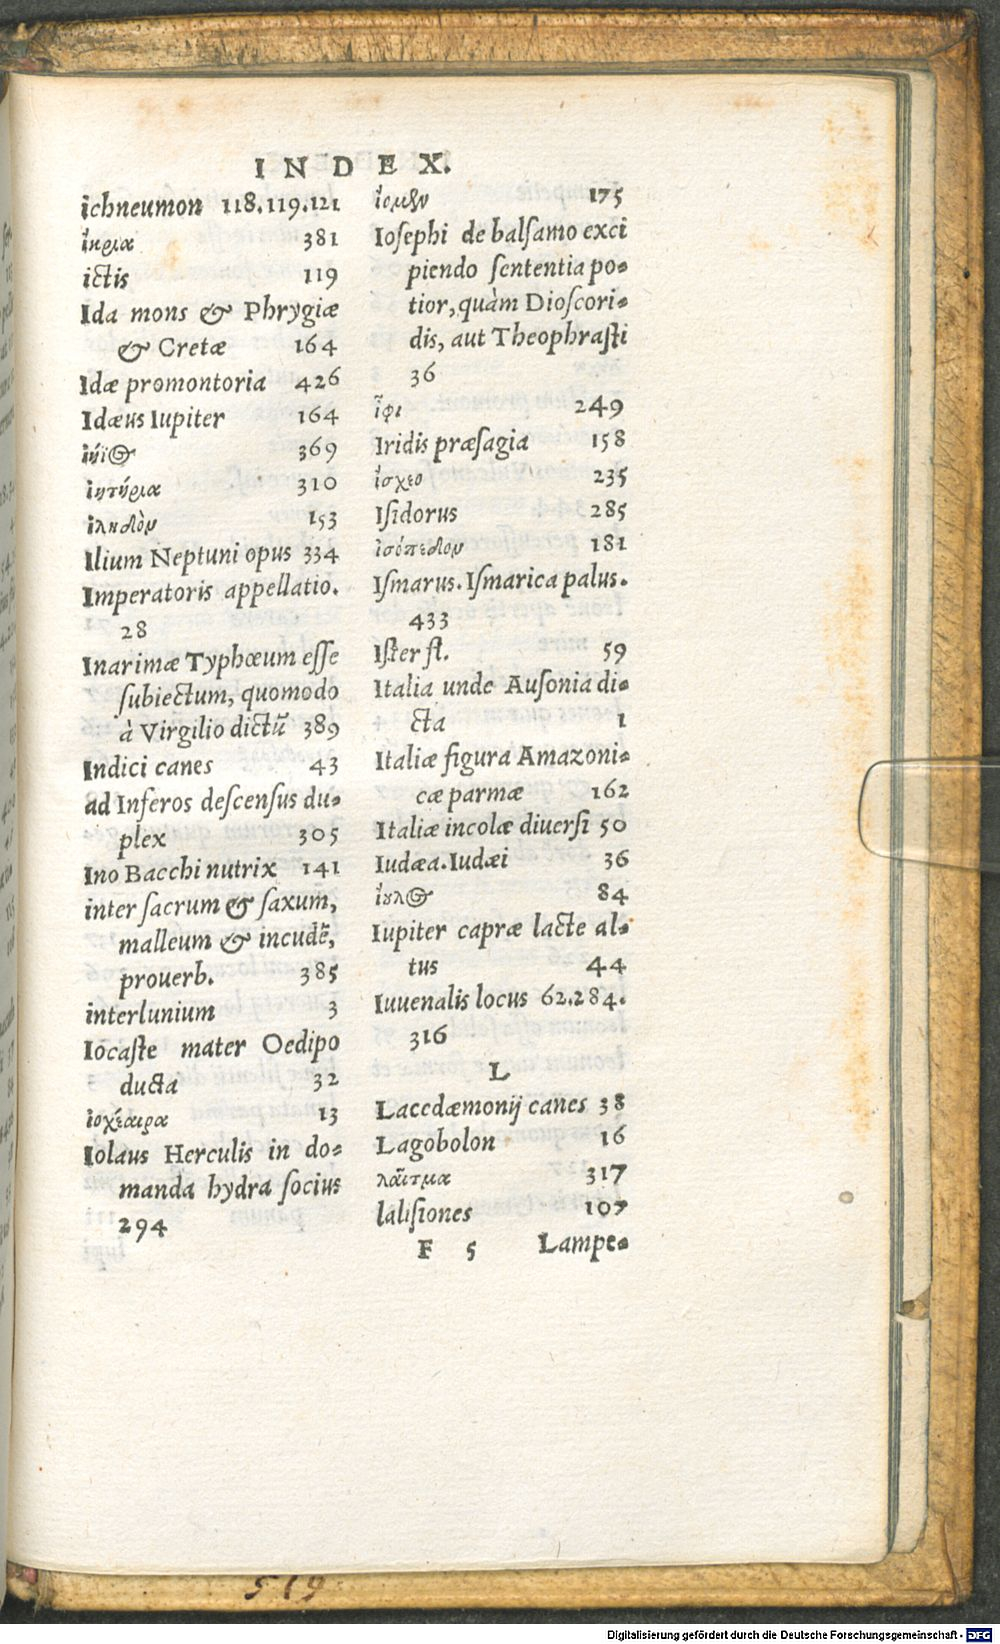 INDEX.
ichneumon 118.119.121
ἴκρια 381
ictis 119
Ida mons & Phrygiæ
& Cretæ 164
Idæ promontoria 426
Idæus Iupiter 164
369
ἰητήρια 310
ἰληδὸν 153
Ilium Neptuni opus 334
Imperatoris appellatio.
28
Inarimæ Typhœum eſſe
ſubiectum, quomodo
à Virgilio dictũ 389
Indici canes 43
ad Inferos deſcenſus du-
plex 305
Ino Bacchi nutrix 141
inter ſacrum & ſaxum,
malleum & incudẽ,
prouerb. 385
interlunium 3
Iocaſte mater Oedipo
ducta 32
ἰοχέαιρα 13
Iolaus Herculis in do-
manda hydra ſocius
294
175
Ioſephi de balſamo exci
piendo ſententia po-
tior, quàm Dioſcori-
dis, aut Theophraſti
36
ἶφι 249
Iridis præſagia 158
ἴσχεο 235
Iſidorus 285
ἰσόπεδον 181
Iſmarus. Iſmarica palus.
433
Iſter fl. 59
Italia unde Auſonia di-
cta 1
Italiæ figura Amazoni-
cæ parmæ 162
Italiæ incolæ diuerſi 50
Iudæa. Iudæi 36
ἴουλος 84
Iupiter capræ lacte al-
tus 44
Iuuenalis locus 62.284.
316
L
Lacedæmonij canes 38
Lagobolon 16
λαῖτμα 317
laliſiones 107
F 5 Lampe-
519
Digitalisierung gefördert durch die Deutsche Forschungsgemeinschaft - DFG